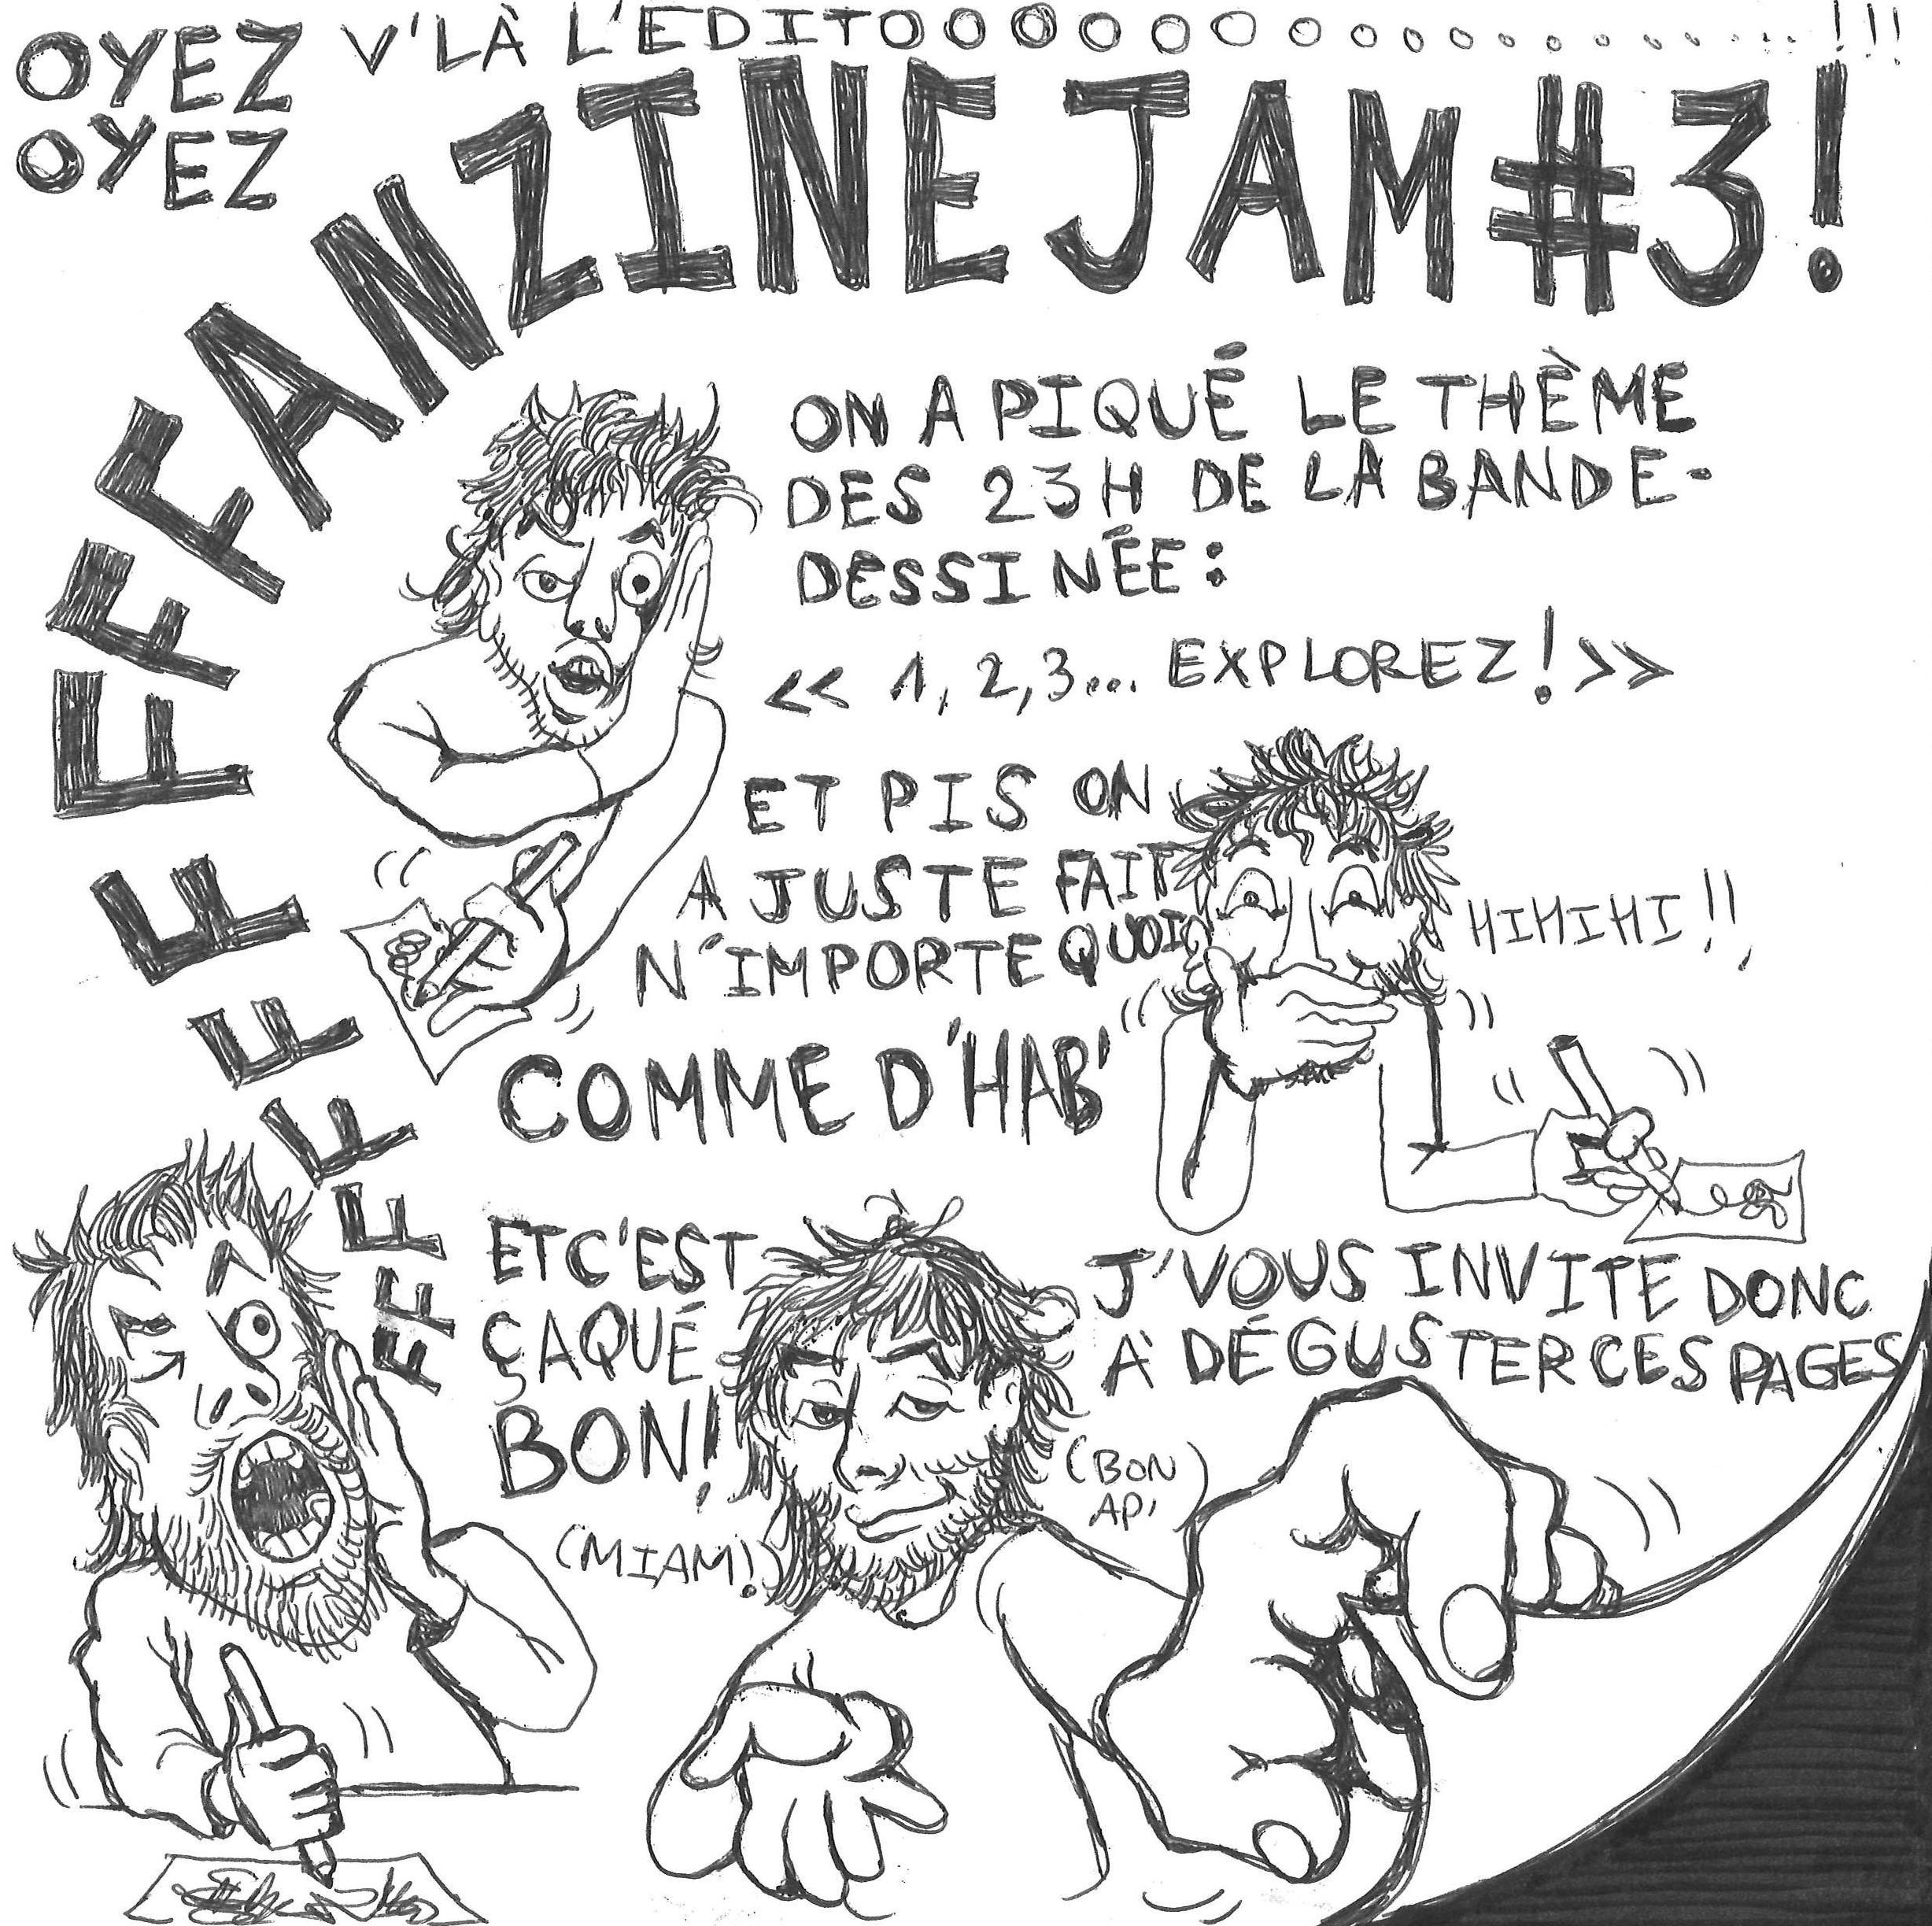 OYEZ
OYEZ
V'LÀ L'EDITOOOOOOOOOOOOOOO.....!!!
FFFFFFFFFANZINE JAM #3!
ON A PIQUÉ LE THÈME
DES 23H DE LA BANDE-
DESSINÉE:
<< 1, 2, 3... EXPLOREZ! >>
ET PIS ON
A JUSTE FAIT
N'IMPORTE QUOI
COMME D'HAB'
HIHIHI!!
ET C'EST
ÇAQUÉ
BON!
(MIAM!)
J'VOUS INVITE DONC
À DÉGUSTER CES PAGES
(BON
AP')